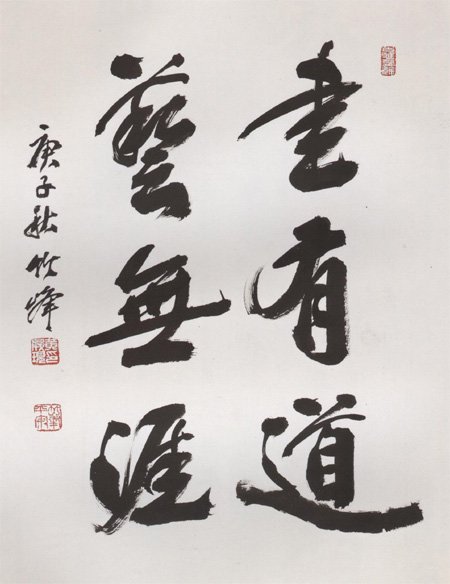 書有道
藝無涯
庚子秋竹峰